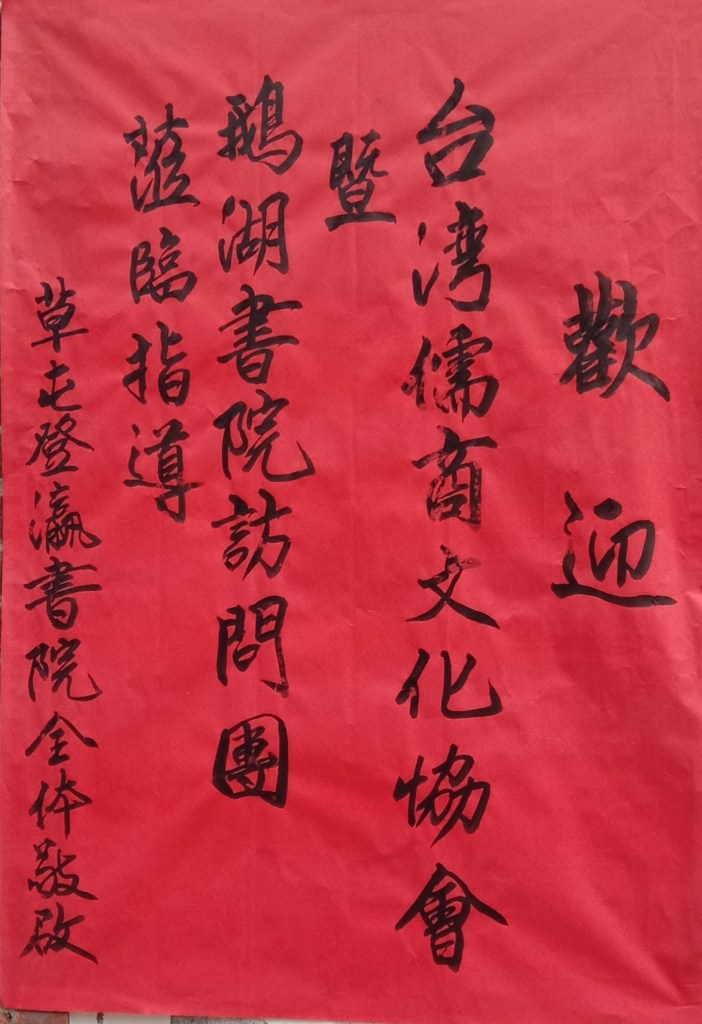 歡迎
台湾儒商文化協會
暨
鵝湖書院訪問團
蒞臨指導
草屯登瀛書院全体敬啟